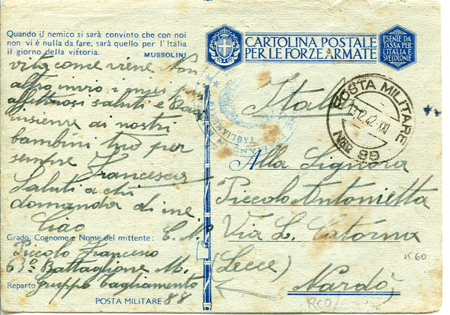 Quando il nemico si sarà convinto che con noi
non vi è nulla da fare, sarà quello per l'Italia
il giorno della vittoria.
MUSSOLINI
vita come viene Non
altro invio i miei più
affettuosi saluti e baci
insieme ai nostri
bambini tuo per
sempre Francesco
Saluti a chi
domanda di me
Ciao
Grado, Cognome e Nome del mittente: C. N.
Piccolo Francesco
63° Battaglione M.
Reparto gruppo Tagliamento
POSTA MILITARE 88
CARTOLINA POSTALE
PER LE FORZE ARMATE
ESENTE DA
TASSA PER
L'ITALIA E
COLONIE
POSTA MILITARE
12.42.XXI
Alla Signora
Piccolo Antonietta
Via L.
(Lecce)
Nardò
K60